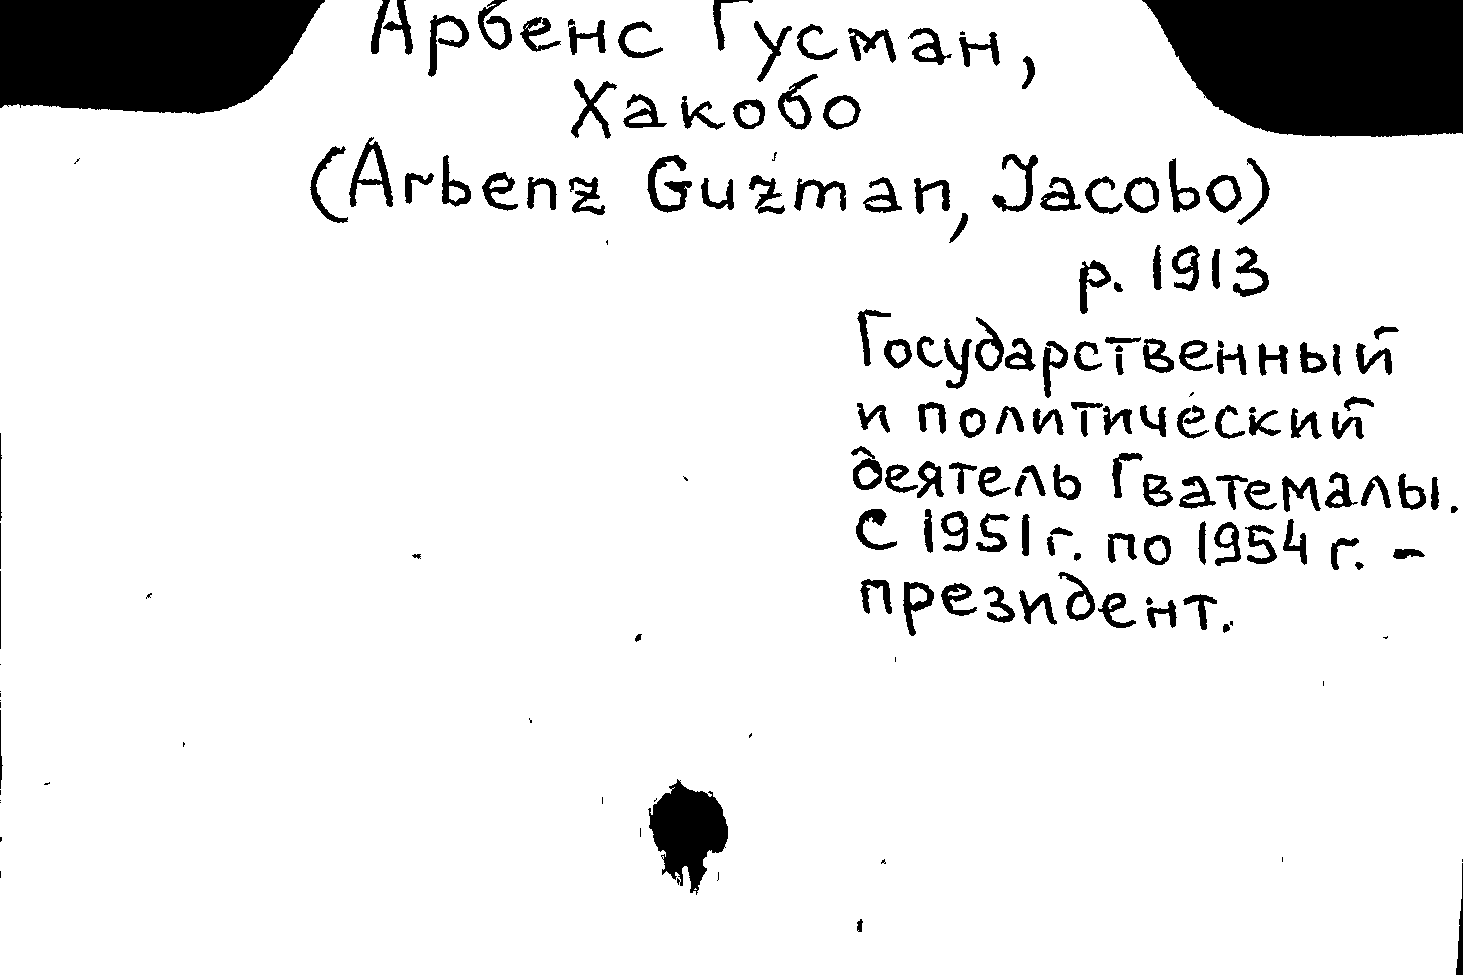 Арбенс Гусман,
Хакобо
(Arbenz Guzman, Jacobo)
р. 1913
Государственный
и политический
деятель Гватемалы.
С 1951 г. по 1954 г. -
президент.